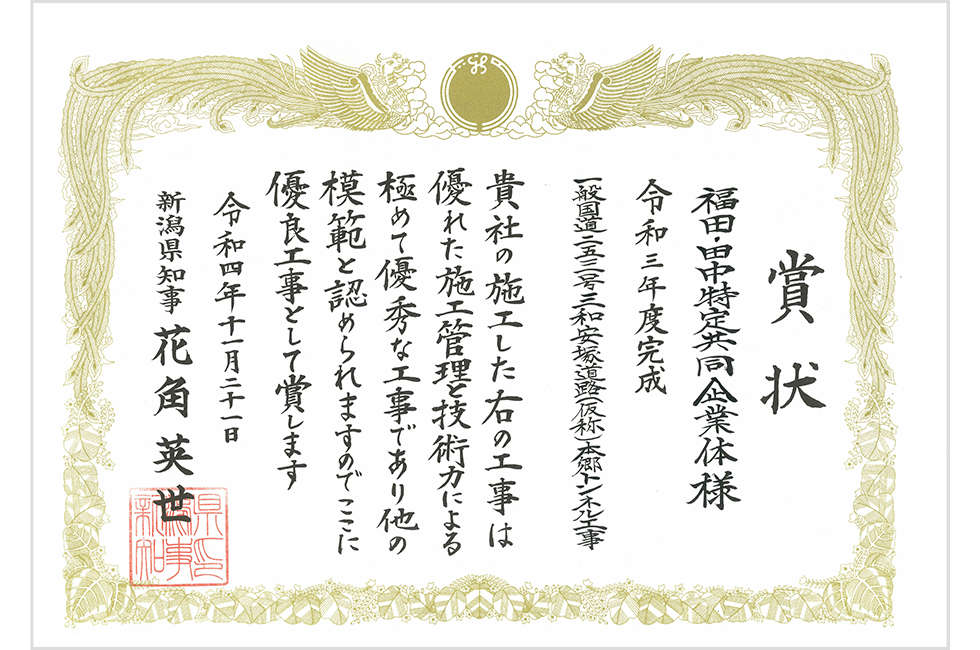 賞状
福田・田中特定共同企業体様
令和三年度完成
一般国道二五三号三和安塚道路(仮称)本郷トンネル工事
貴社の施工した右の工事は
優れた施工管理と技術力による
極めて優秀な工事であり他の
模範と認められますのでここに
優良工事として賞します
令和四年十一月二十一日
新潟県知事 花角英世
新潟県知事之印